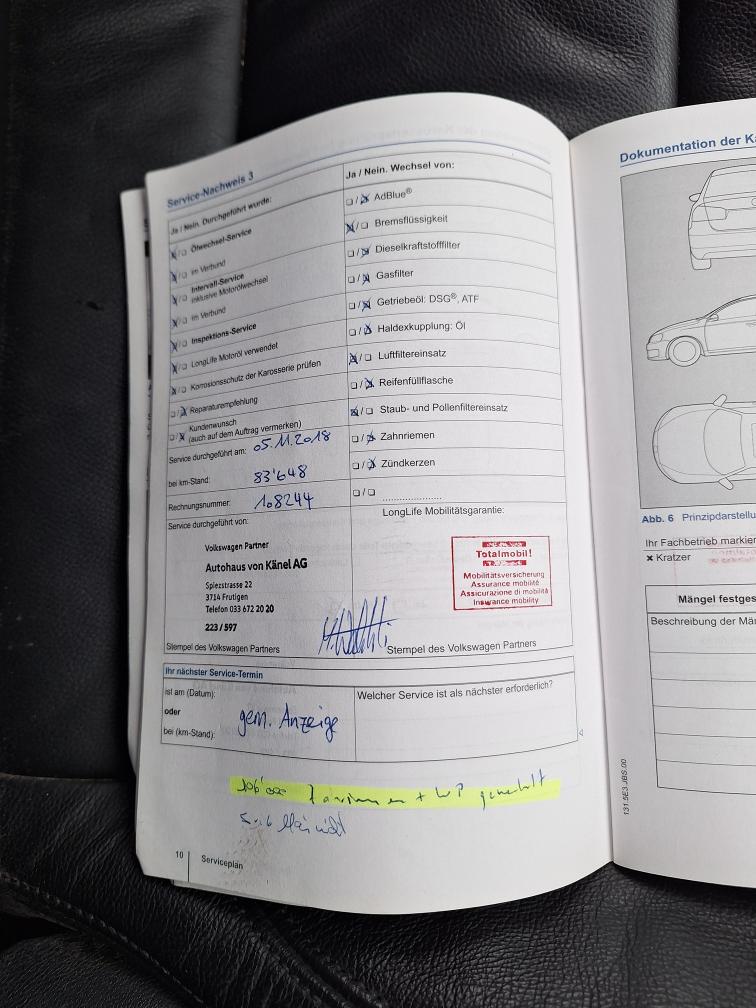 Service-Nachweis 3
Ja / Nein. Durchgeführt wurde:
Ölwechsel-Service
im Verbund
Intervall-Service
inklusive Motorölwechsel
im Verbund
Inspektions-Service
LongLife Motoröl verwendet
Korrosionsschutz der Karosserie prüfen
Reparaturempfehlung
Kundenwunsch
(auch auf dem Auftrag vermerken)
Service durchgeführt am: 05.11.2018
bei km-Stand: 83'648
Rechnungsnummer: 108244
Service durchgeführt von:
Volkswagen Partner
Autohaus von Känel AG
Spiezstrasse 22
3714 Frutigen
Telefon 033 672 20 20
223 / 597
Stempel des Volkswagen Partners
Ja / Nein. Wechsel von:
AdBlue®
Bremsflüssigkeit
Dieselkraftstofffilter
Gasfilter
Getriebeöl: DSG®, ATF
Haldexkupplung: Öl
Luftfiltereinsatz
Reifenfüllflasche
Staub- und Pollenfiltereinsatz
Zahnriemen
Zündkerzen
LongLife Mobilitätsgarantie:
Totalmobil!
Mobilitätsversicherung
Assurance mobilité
Assicurazione di mobilità
Insurance mobility
Stempel des Volkswagen Partners
Ihr nächster Service-Termin
ist am (Datum):
oder
bei (km-Stand):
gem. Anzeige
Welcher Service ist als nächster erforderlich?
10 Serviceplan
Dokumentation der Ka
Abb. 6 Prinzipdarstellu
Ihr Fachbetrieb markier
× Kratzer
Mängel festges
Beschreibung der Män
131.5E3.JBS.00